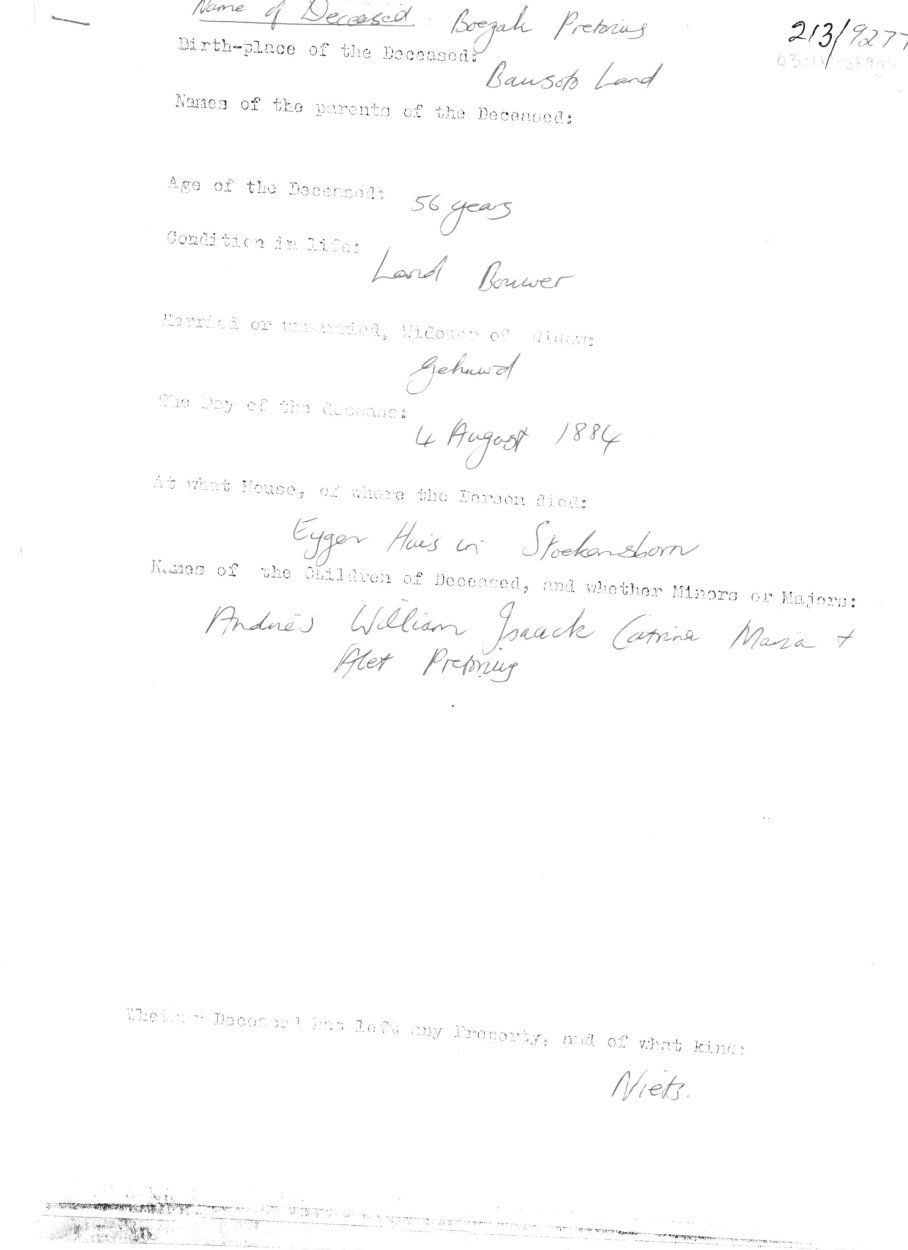 Name of Deceased: Boezak Pretorius
213/9277
Birth-place of the Deceased:
Bausoto Land
Names of the parents of the Deceased:
Age of the Deceased: 56 years
Condition in life:
Land Bouwer
Married or unmarried, Widower of Widow:
Gehuwd
The Day of the decease:
4 August 1884
At what House, of where the Person died:
Eygen Huis in Stockensborn
Names of the Children of Deceased, and whether Minors or Majors:
Andries William Isaack Catrina Maria +
Alet Pretorius
Whether Deceased has left any Property, and of what kind:
Niets.